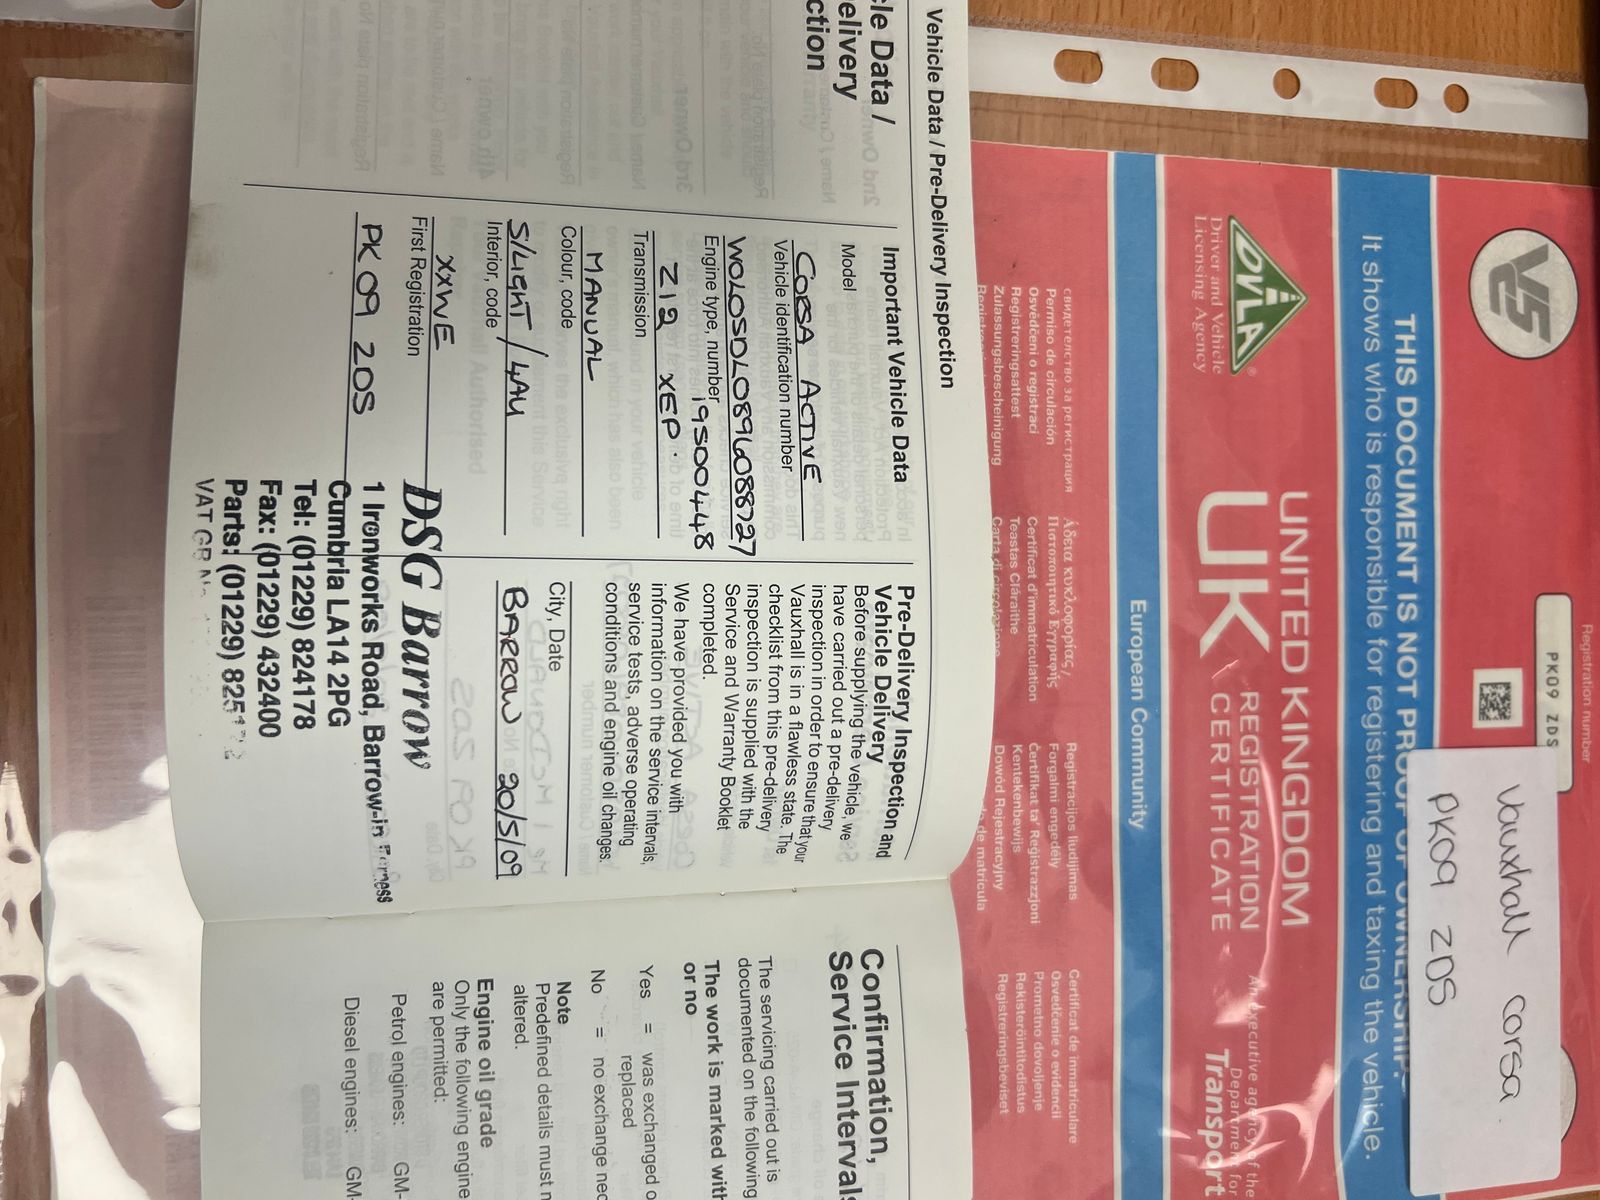 Vehicle Data / Pre-Delivery Inspection
cle Data /
elivery
ction
Important Vehicle Data
Model
CORSA ACTIVE
Vehicle identification number
WOLOSDL0896088727
Engine type, number
19S00448
Z12 XEP.
Transmission
MANUAL
Colour, code
S/LIGHT / 4AU
Interior, code
XXWE
First Registration
PK 09 ZDS
Pre-Delivery Inspection and
Vehicle Delivery
Before supplying the vehicle, we
have carried out a pre-delivery
inspection in order to ensure that your
Vauxhall is in a flawless state. The
checklist from this pre-delivery
inspection is supplied with the
Service and Warranty Booklet
completed.
We have provided you with
information on the service intervals,
service tests, adverse operating
conditions and engine oil changes.
City, Date
BARROW 20/5/09
DSG Barrow
1 Ironworks Road, Barrow-in Furness
Cumbria LA14 2PG
Tel: (01229) 824178
Fax: (01229) 432400
Parts: (01229) 825
VAT GB
Confirmation,
Service Intervals
The servicing carried out is
documented on the following
The work is marked with
or no
Yes = was exchanged o
replaced
No = no exchange nec
Note
Predefined details must n
altered.
Engine oil grade
Only the following engine
are permitted:
Petrol engines: GM-
Diesel engines: GM-
Registration number
PK09 ZDS
V5C
THIS DOCUMENT IS NOT PROOF OF OWNERSHIP.
It shows who is responsible for registering and taxing the vehicle.
Vauxhall Corsa
PK09 ZDS
DVLA
Driver and Vehicle
Licensing Agency
UNITED KINGDOM
UK REGISTRATION
CERTIFICATE
An executive agency of the
Department for
Transport
European Community
свидетелство за регистрация
Permiso de circulación
Osvědčení o registraci
Registreringsattest
Zulassungsbescheinigung
Άδεια κυκλοφορίας /
Πιστοποιητικό Εγγραφής
Certificat d'immatriculation
Teastas Cláraithe
Carta di circolazione
Registracijos liudijimas
Forgalmi engedély
Ċertifikat ta' Reġistrazzjoni
Kentekenbewijs
Dowód Rejestracyjny
do de matrícula
Certificat de inmatriculare
Osvedčenie o evidencii
Prometno dovoljenje
Rekisteröintitodistus
Registreringsbeviset